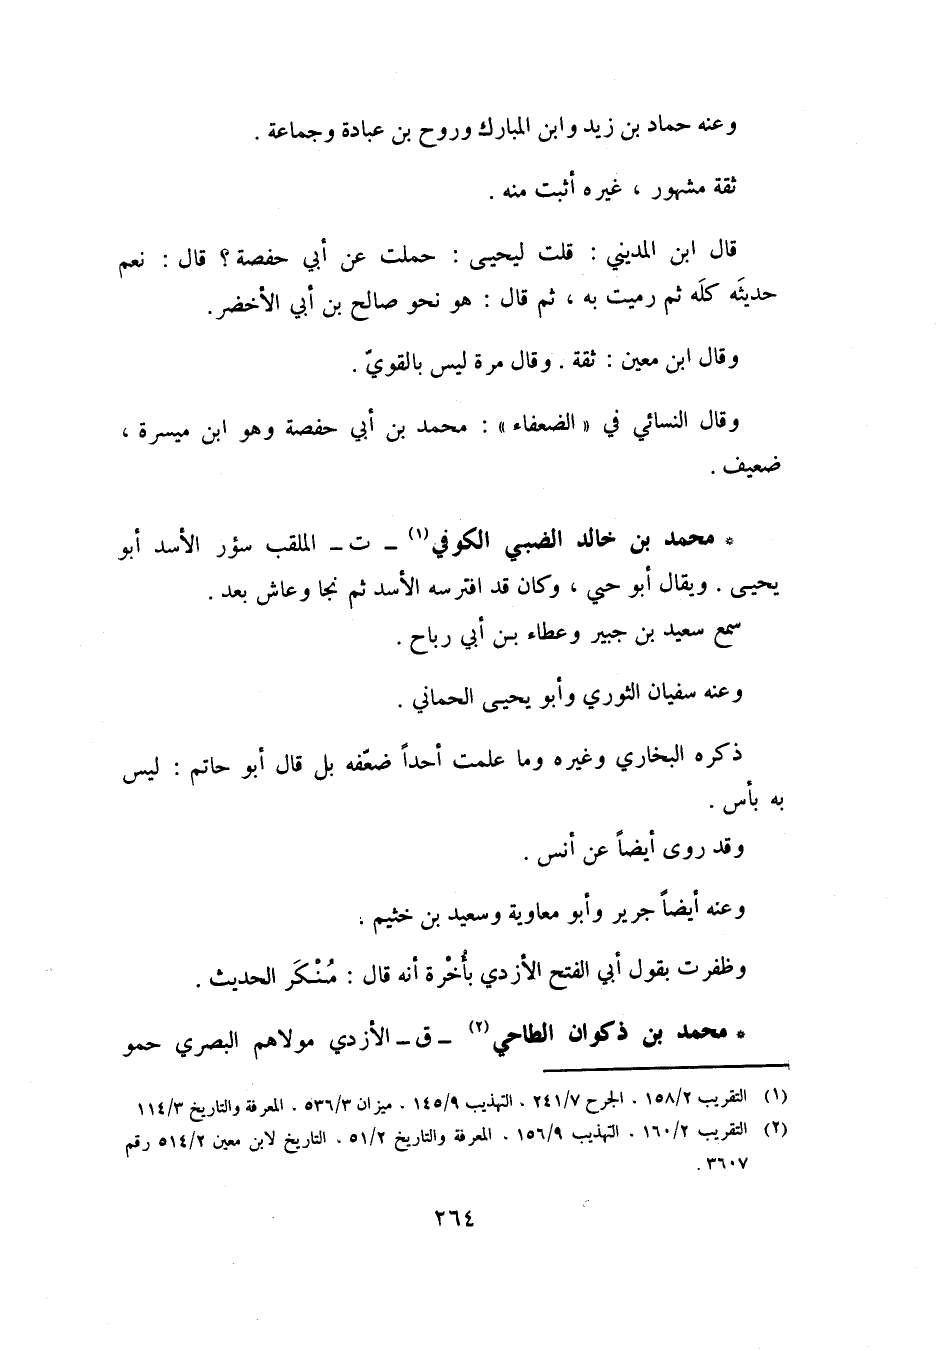 وعنه حماد بن زيد وابن المبارك وروح بن عبادة وجماعة .
ثقة مشهور ، غيره أثبت منه .
قال ابن المديني : قلت ليحيى : حملت عن أبي حفصة ؟ قال : نعم
حديثَه كلَه ثم رميت به ، ثم قال : هو نحو صالح بن أبي الأخضر .
وقال ابن معين : ثقة . وقال مرة ليس بالقويّ .
وقال النسائي في « الضعفاء » : محمد بن أبي حفصة وهو ابن ميسرة ،
ضعيف .
* محمد بن خالد الضبي الكوفي(١) ـ ت ـ الملقب سؤر الأسد أبو
يحيى . ويقال أبو حيي ، وكان قد افترسه الأسد ثم نجا وعاش بعد .
سمع سعيد بن جبير وعطاء بن أبي رباح .
وعنه سفيان الثوري وأبو يحيى الحماني .
ذكره البخاري وغيره وما علمت أحداً ضعّفه بل قال أبو حاتم : ليس
به بأس .
وقد روى أيضاً عن أنس .
وعنه أيضاً جرير وأبو معاوية وسعيد بن خثيم .
وظفرت بقول أبي الفتح الأزدي بأُخْرة أنه قال : مُنْكَر الحديث .
* محمد بن ذكوان الطاحي(٢) ـ ق ـ الأزدي مولاهم البصري حمو
(١) التقريب ١٥٨/٢ . الجرح ٢٤١/٧ . التهذيب ١٤٥/٩ . ميزان ٥٣٦/٣ . المعرفة والتاريخ ١١٤/٣
(٢) التقريب ١٦٠/٢ . التهذيب ١٥٦/٩ . المعرفة والتاريخ ٥١/٢ . التاريخ لابن معين ٥١٤/٢ رقم
٣٦٠٧ .
٢٦٤